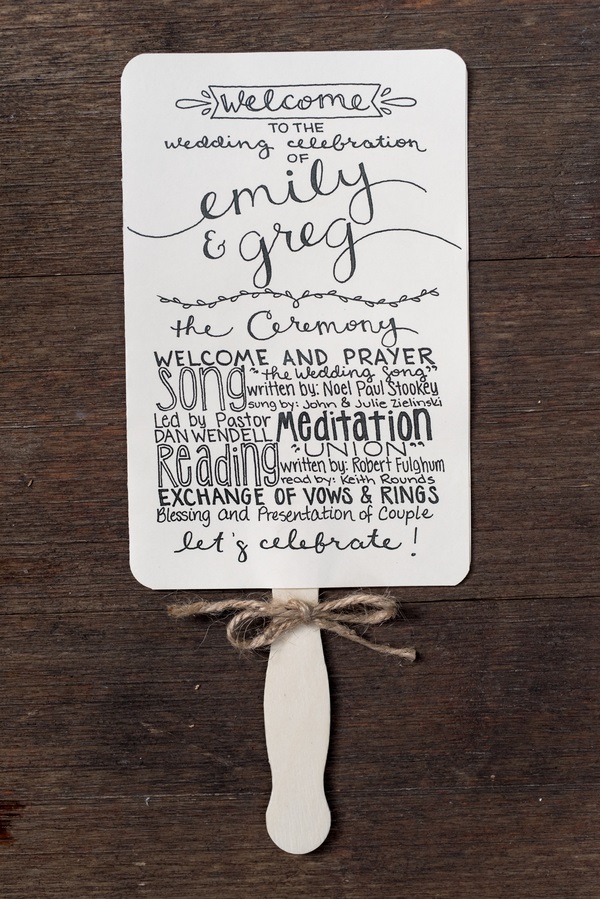 welcome
TO THE
wedding celebration
OF
emily
& greg
the Ceremony
WELCOME AND PRAYER
Song "the Wedding Song"
written by: Noel Paul Stookey
sung by: John & Julie Zielinski
Led by Pastor
DAN WENDELL Meditation
Reading "UNION"
written by: Robert Fulghum
read by: Keith Rounds
EXCHANGE OF VOWS & RINGS
Blessing and Presentation of Couple
let's celebrate!